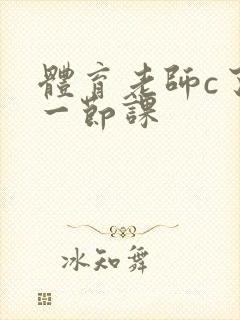 體育老師c了
一節課
冰知舞